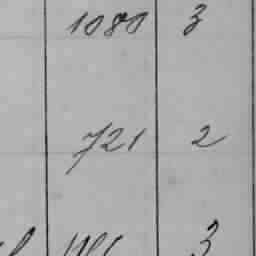 1080 3
721 2
3